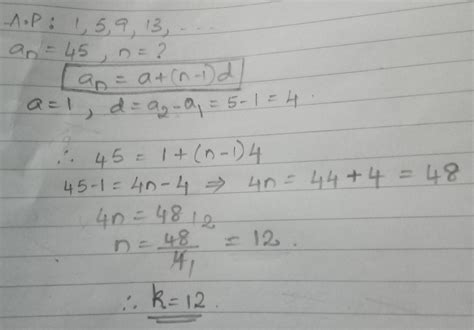 A.P: 1, 5, 9, 13, ....
an = 45, n = ?
an = a+(n-1)d
a = 1, d = a2-a1 = 5-1 = 4.
∴ 45 = 1+(n-1)4
45-1 = 4n-4 ⇒ 4n = 44+4 = 48
4n = 48
n = 48/4 = 12.
∴ k=12.